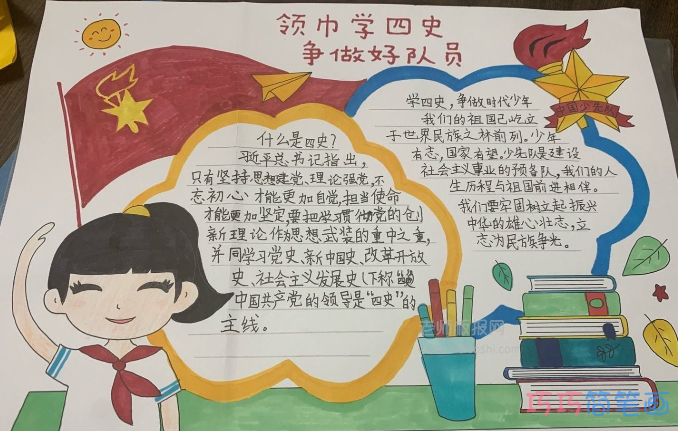 领巾学四史
争做好队员
什么是四史?
习近平总书记指出,
只有坚持思想建党、理论强党,不
忘初心才能更加自党,担当使命
才能更加坚定,要把学习贯彻党的创
新理论作为思想武装的重中之重,
并同学习党史、新中国史、改革开放
史、社会主义发展史(下称
中国共产党的领导是“四史”的
主线。
学四史,争做时代少年
我们的祖国已屹立
于世界民族之林前列。少年
有志,国家有望。少先队是建设
社会主义事业的预备队,我们的人
生历程与祖国前进相伴。
我们要牢固树立起振兴
中华的雄心壮志,立
志为民族争光。
中国少先队
老师板报网
巧巧简笔画